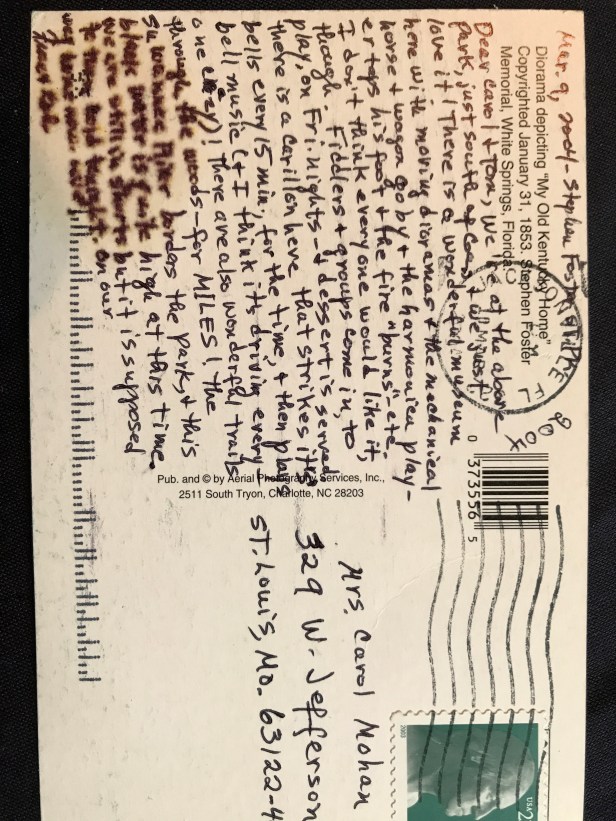 Mar. 9, 2004 - Stephen Foster
Diorama depicting "My Old Kentucky Home"
Copyrighted January 31, 1853. Stephen Foster
Memorial, White Springs, Florida
Dear Carol & Tom, We're at the above
Park, just south of & we just
love it! There is a wonderful museum
here with moving dioramas & the mechanical
horse & wagon go by & the harmonica play-
er taps his foot & the fire "burns" - etc.
I don't think everyone would like it,
though. Fiddlers & groups come in, to
play on Fri. nights - & dessert is served
there is a carillon here that strikes its
bells every 15 min, for the time, & then plays
bell music (& I think it's drivin every
one crazy)! There are also wonderful trails
through the woods - for MILES! the
Suwannee River borders the park, & this
black water is quite high at this time.
We are still in shorts but it is supposed
to tonight. On our
way home now.
FL
2004
0 373556 5
Pub. and © by Aerial Photography Services, Inc.,
2511 South Tryon, Charlotte, NC 28203
Mrs. Carol Mohan
329 W. Jefferson
St. Louis, Mo. 63122-4
USA 2
2003